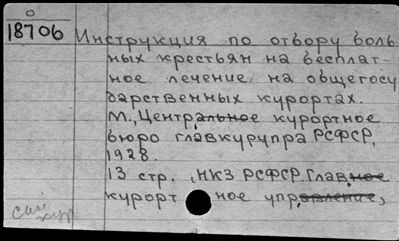 0
18706
Инструкция по отбору боль
ных крестьян на бесплат-
ное лечение на общегосу
дарственных курортах.
М., Центральное курортное
бюро главкурупра РСФСР,
1928.
13 стр. (НКЗ РСФСР. Главное
курортное управление,